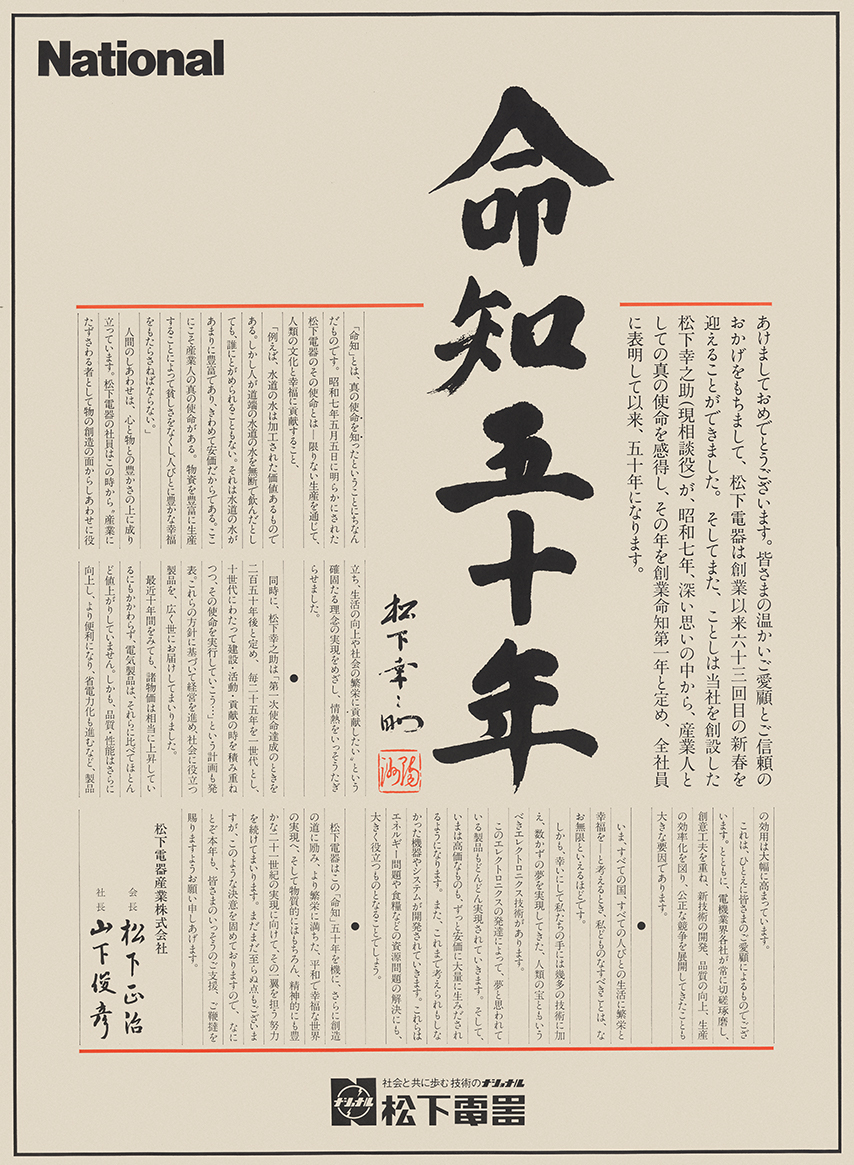 National
命知五十年
松下幸之助
あけましておめでとうございます。皆さまの温かいご愛顧とご信頼の
おかげをもちまして、松下電器は創業以来六十三回目の新春を
迎えることができました。そしてまた、ことしは当社を創設した
松下幸之助(現相談役)が、昭和七年、深い思いの中から、産業人と
しての真の使命を感得し、その年を創業命知第一年と定め、全社員
に表明して以来、五十年になります。
「命知」とは、真の使命を知ったということにちなん
だものです。昭和七年五月五日に明らかにされた
松下電器のその使命とは—限りない生産を通じて、
人類の文化と幸福に貢献すること、
「例えば、水道の水は加工された価値あるもので
ある。しかし人が道端の水道の水を無断で飲んだとし
ても、誰にとがめられることもない。それは水道の水が
あまりに豊富であり、きわめて安価だからである。ここ
にこそ産業人の真の使命がある。物資を豊富に生産
することによって貧しさをなくし、人びとに豊かな幸福
をもたらさねばならない。」
人間のしあわせは、心と物との豊かさの上に成り
立っています。松下電器の社員はこの時から〝産業に
たずさわる者として物の創造の面からしあわせに役
立ち、生活の向上や社会の繁栄に貢献したい〟という
確固たる理念の実現をめざし、情熱をいっそうたぎ
らせました。
●
同時に、松下幸之助は「第一次使命達成のときを
二百五十年後と定め、毎二十五年を一世代とし、
十世代にわたって建設・活動・貢献の時を積み重ね
つつ、その使命を実行していこう…」という計画も発
表。これらの方針に基づいて経営を進め、社会に役立つ
製品を、広く世にお届けしてまいりました。
最近十年間をみても、諸物価は相当に上昇してい
るにもかかわらず、電気製品は、それらに比べてほとん
ど値上がりしていません。しかも、品質・性能はさらに
向上し、より便利になり、省電力化も進むなど、製品
の効用は大幅に高まっています。
これは、ひとえに皆さまのご愛顧によるものでござ
います。とともに、電機業界各社が常に切磋琢磨し、
創意工夫を重ね、新技術の開発、品質の向上、生産
の効率化を図り、公正な競争を展開してきたことも
大きな要因であります。
●
いま、すべての国、すべての人びとの生活に繁栄と
幸福を—と考えるとき、私どものなすべきことは、な
お無限といえるほどです。
しかも、幸いにして私たちの手には幾多の技術に加
え、数かずの夢を実現してきた、人類の宝ともいう
べきエレクトロニクス技術があります。
このエレクトロニクスの発達によって、夢と思われて
いる製品もどんどん実現されていきます。そして、
いまは高価なものも、ずっと安価に大量に生みだされ
るようになります。また、これまで考えられもしな
かった機器やシステムが開発されていきます。これらは
エネルギー問題や食糧などの資源問題の解決にも、
大きく役立つものとなることでしょう。
●
松下電器はこの「命知」五十年を機に、さらに創造
の道に励み、より繁栄に満ちた、平和で幸福な世界
の実現へ、そして物質的にはもちろん、精神的にも豊
かな二十一世紀の実現に向けて、その一翼を担う努力
を続けてまいります。まだまだ至らぬ点もございま
すが、このような決意を固めておりますので、なに
とぞ本年も、皆さまのいっそうのご支援、ご鞭撻を
賜りますようお願い申しあげます。
松下電器産業株式会社
会長 松下正治
社長 山下俊彦
社会と共に歩む技術のナショナル
ナショナル
松下電器